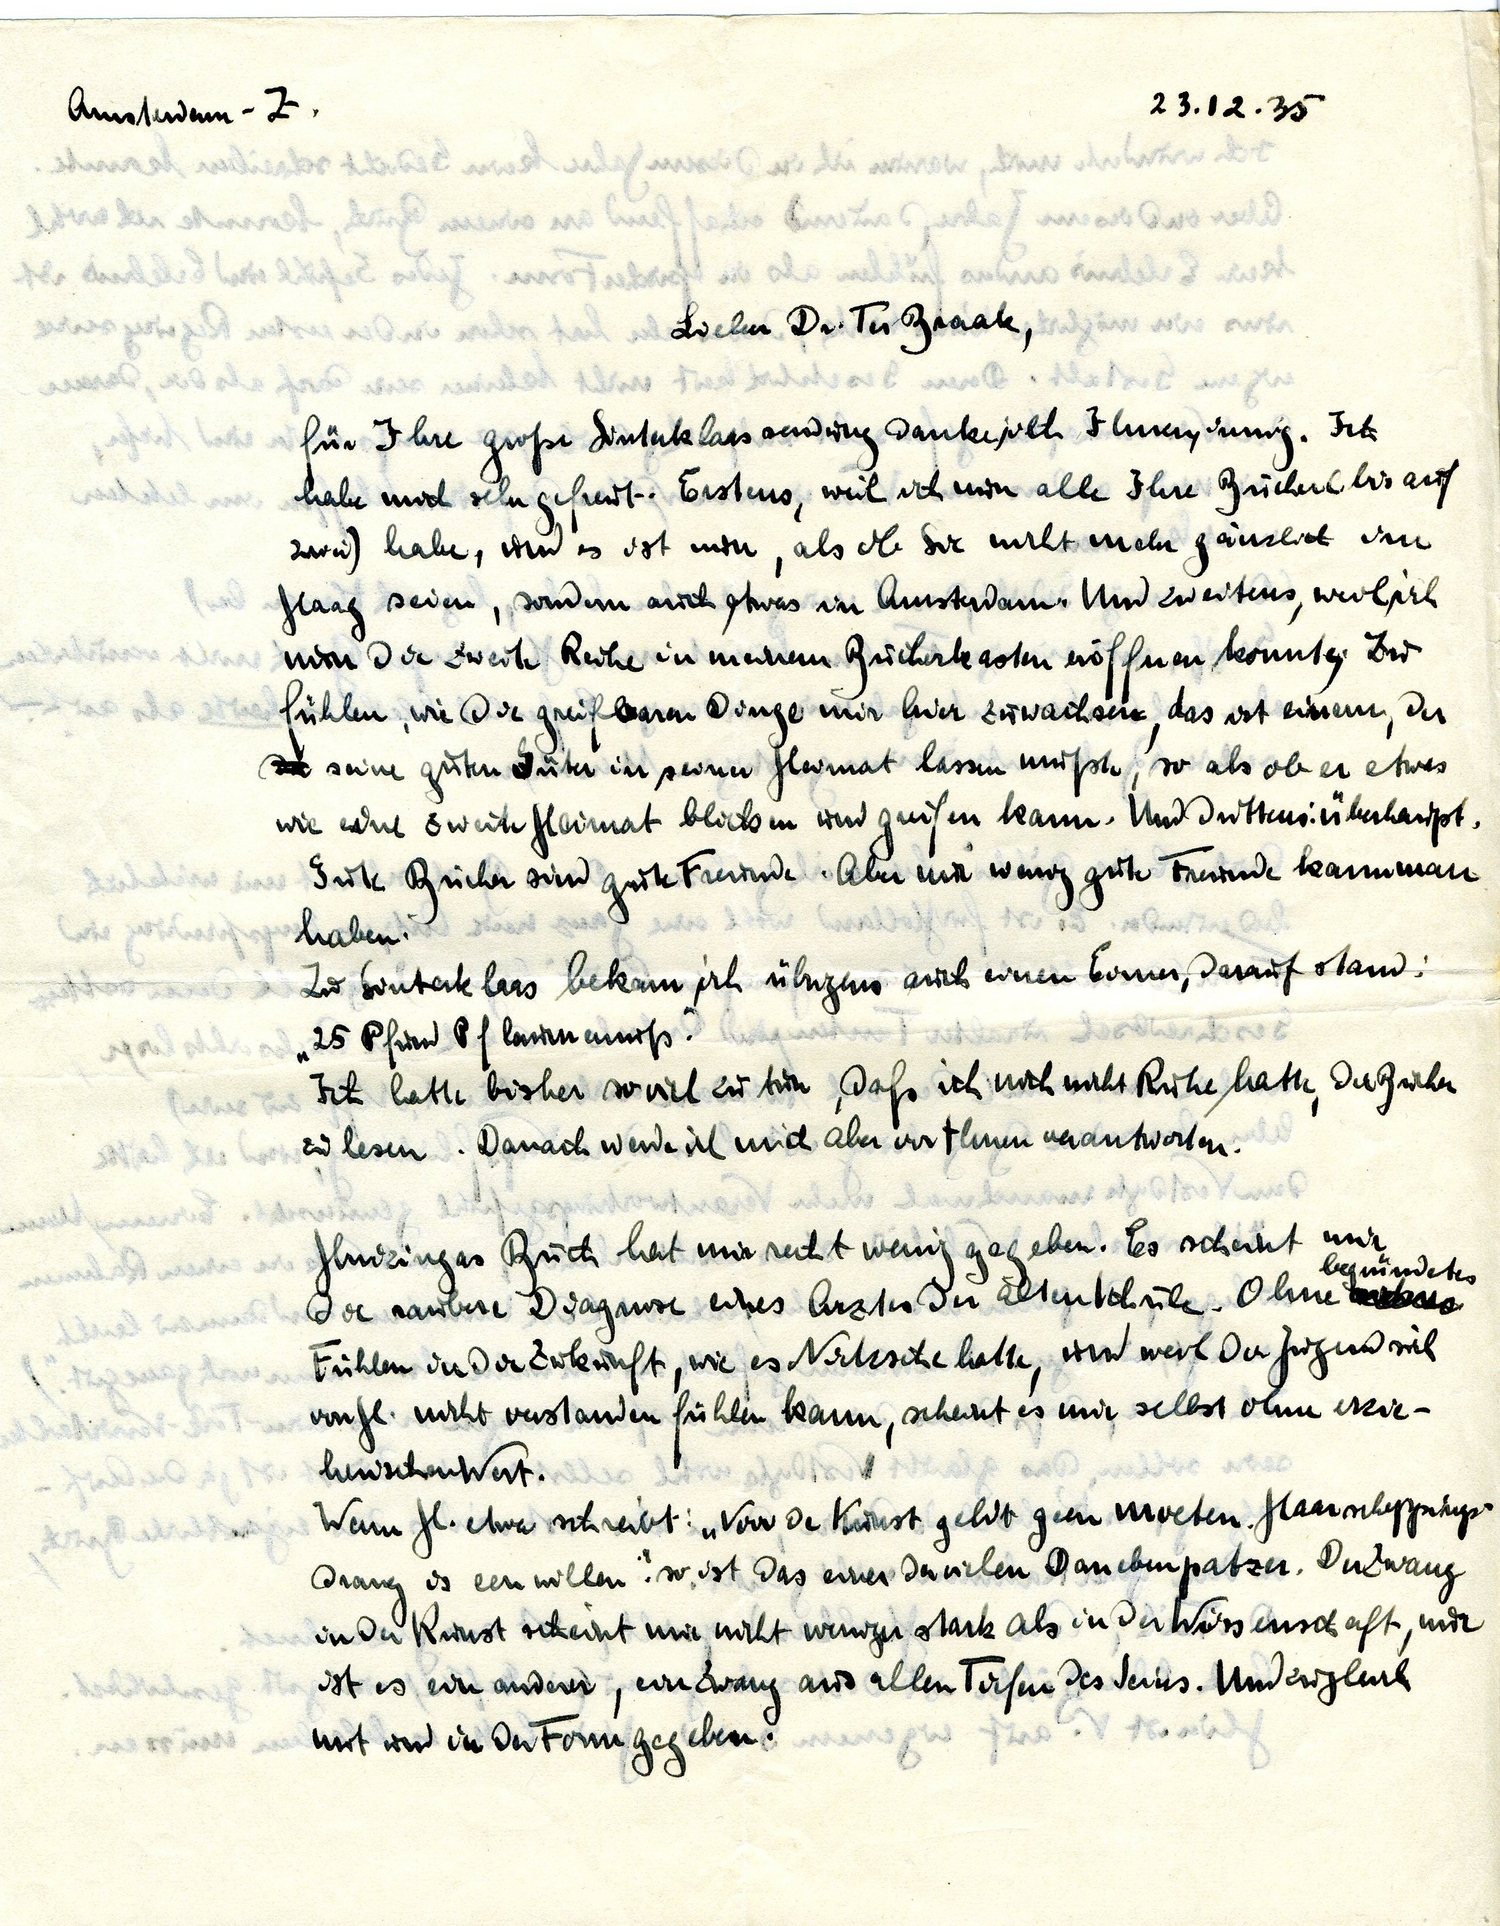 Amsterdam-Z.
23.12.35
Lieber Dr. Ter Braak,
für Ihre große Sinterklaassendung danke ich Ihnen innig. Ich
habe mich sehr gefreut. Erstens, weil ich nun alle Ihre Bücher (bis auf
zwei) habe, und es ist nun, als ob Sie nicht mehr gänzlich im
Haag seien, sondern auch etwas in Amsterdam. Und zweitens, weil ich
nun die zweite Reihe in meinem Bücherkasten eröffnen konnte; Zu
fühlen, wie die greifbaren Dinge mir hier zuwachsen, das ist einem, der
seine guten Güter in seiner Heimat lassen mußte, so als ob er etwas
wie eine zweite Heimat blicken und greifen kann. Und drittens: überhaupt.
Gute Bücher sind gute Freunde. Aber nur wenig gute Freunde kann man
haben.
Zu Sinterklaas bekam ich übrigens auch einen Eimer, darauf stand:
„25 Pfund Pflaumenmuß."
Ich hatte bisher soviel zu tun, daß ich noch nicht Ruhe hatte, die Bücher
zu lesen. Danach werde ich mich aber vor Ihnen verantworten.
Huizingas Buch hat mir recht wenig gegeben. Es scheint mir
die saubere Diagnose eines Arztes der alten Schule. Ohne begründetes
Fühlen in die Zukunft, wie es Nietzsche hatte, und weil die Jugend sich
von H. nicht verstanden fühlen kann, scheint es mir selbst ohne erzie-
herischen Wert.
Wenn H. etwa schreibt: „Voor de Kunst geldt geen moeten. Haar scheppings-
drang is een willen": so ist das einer der vielen Danebenpatzer. Der Zwang
in der Kunst scheint mir nicht weniger stark als in der Wissenschaft, nur
ist es ein anderer, ein Zwang aus allen Tiefen des Seins. Und zugleich
mit und in der Form gegeben.